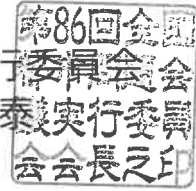 第86回全国
委員会
会
泰
実行委員
会会長之印